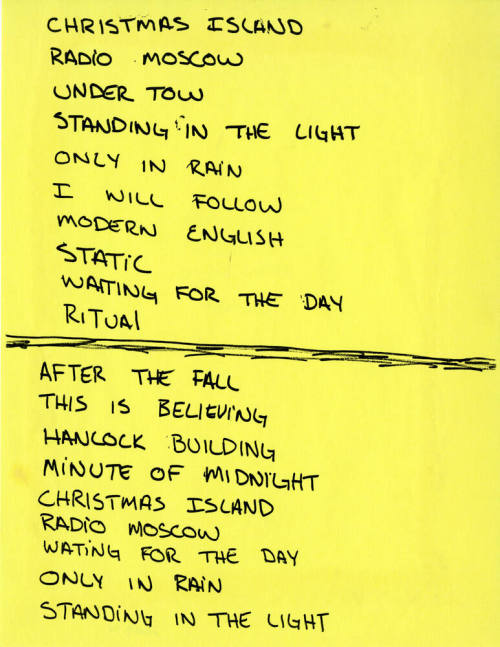 CHRISTMAS ISLAND
RADIO MOSCOW
UNDER TOW
STANDING IN THE LIGHT
ONLY IN RAIN
I WILL FOLLOW
MODERN ENGLISH
STATIC
WAITING FOR THE DAY
RITUAL
AFTER THE FALL
THIS IS BELIEVING
HANCOCK BUILDING
MINUTE OF MIDNIGHT
CHRISTMAS ISLAND
RADIO MOSCOW
WATING FOR THE DAY
ONLY IN RAIN
STANDING IN THE LIGHT